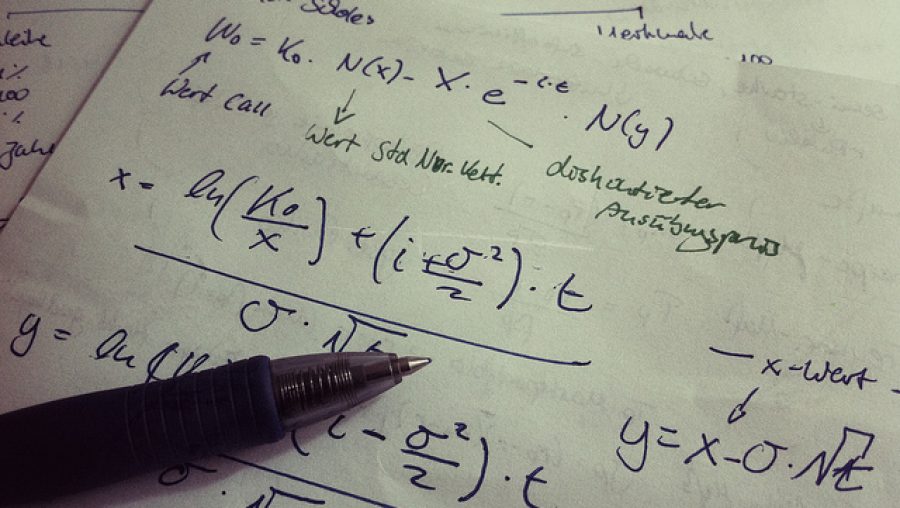 Merkmale
100
%
100
%
Jahre
W₀ = K₀ · N(x) - X · e^(-i·t) · N(y)
Wert Call
Wert Std Nor. Vert.
diskontierter
Ausübungspreis
x = (ln(K₀/x) + (i + σ²/2) · t) / (σ · √t)
y = ln(K
(i - σ²/2) · t
σ · √
x-Wert
y = x - σ · √t